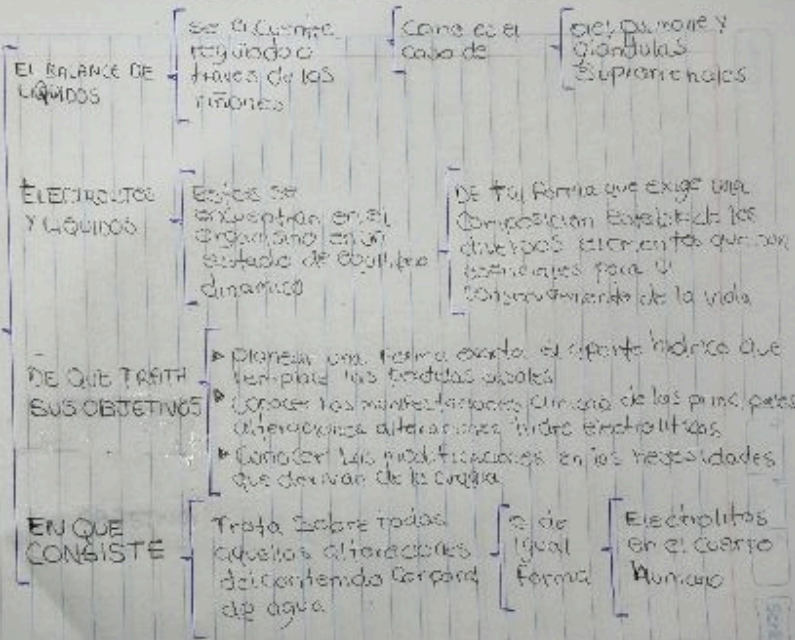 EL BALANCE DE
LIQUIDOS
se encuentra
regulado a
traves de los
riñones
Como es el
caso de
pulmone y
Glandulas
Suprarrenales
ELECTROLITOS
Y LIQUIDOS
Estos se
encuentran en el
organismo en un
estado de equilibrio
dinamico
DE tal forma que exige una
composición Estable de los
diversos elementos que son
esenciales para
de la vida
DE QUE TRATA
SUS OBJETIVOS
▸ planear una forma exacta el aporte hidrico que
las perdidas
▸ conocer las manifestaciones clinicas de las principales
alteraciones alteraciones hidro electroliticas
▸ Conocer las modificaciones en las necesidades
que derivan de la cirugia
EN QUE
CONSISTE
Trata Sobre todas
aquellas alteraciones
del contenido Corporal
de agua
de
igual
Forma
Electrolitos
en el cuerpo
Humano